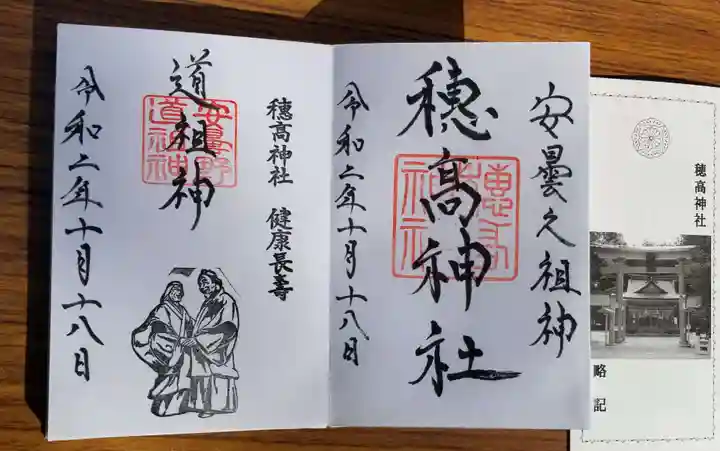 安曇之祖神
穂高神社
令和二年十月十八日
穂高神社　健康長寿
道祖神
安曇野
道祖神
令和二年十月十八日
穂高神社
略記